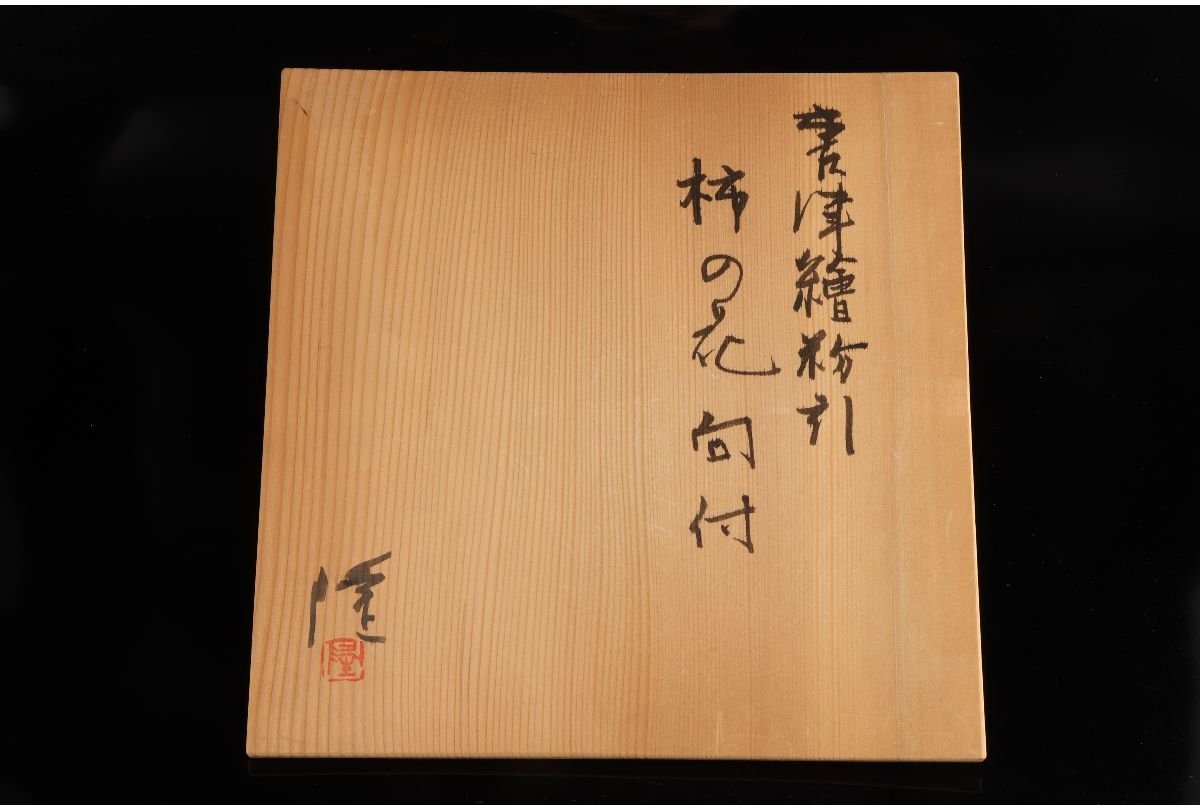 唐津繪粉引
柿の花 向付
隆
隆